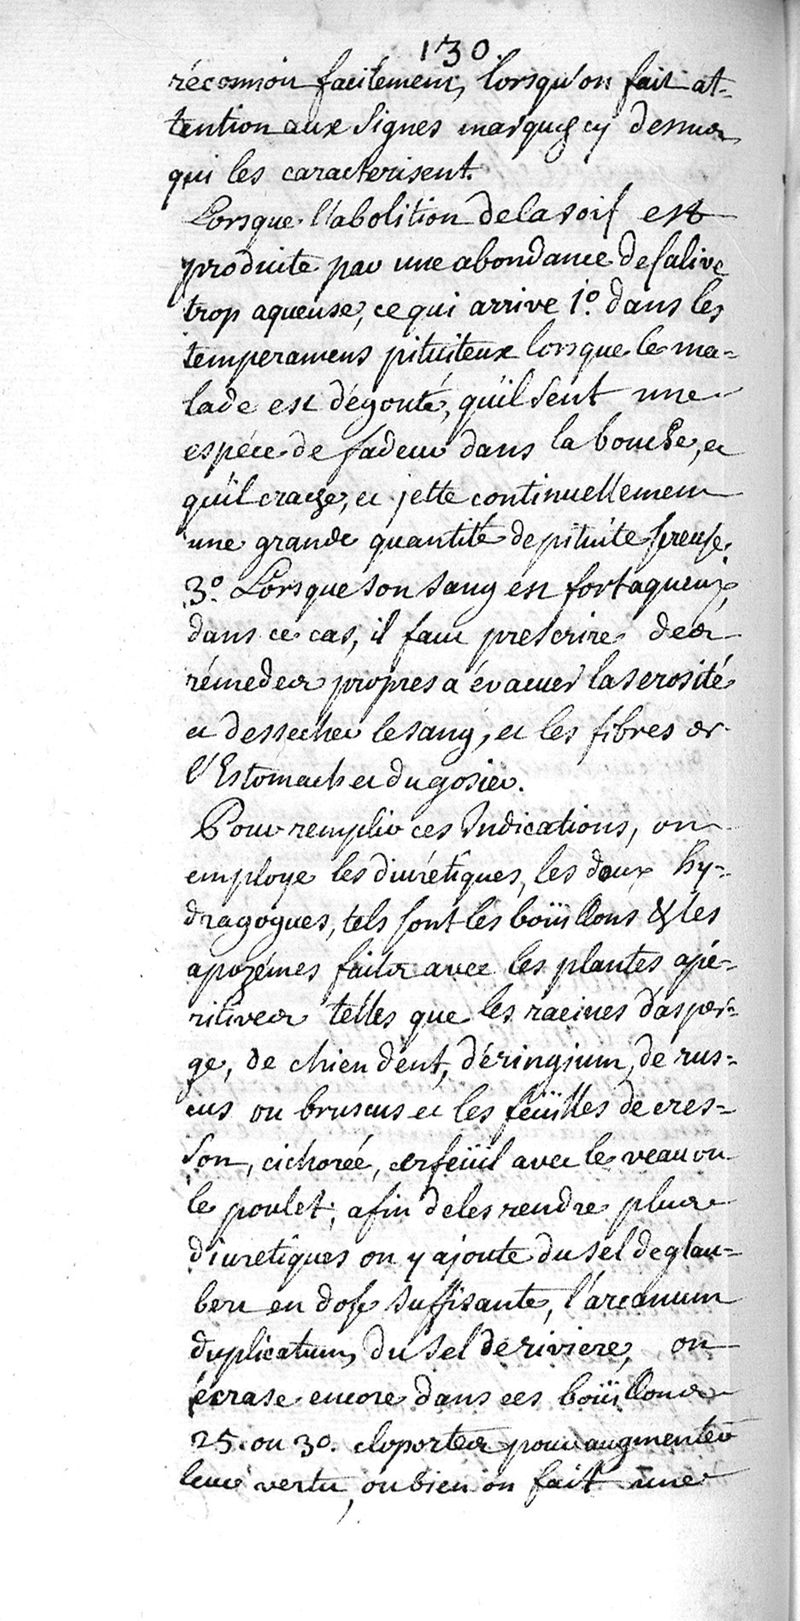 130.
réconnoit facilement, lorsqu'on fait at-
tention aux signes marqués cy dessus
qui les caracterisent.
Lorsque l'abolition de la soif est
produite par une abondance de salive
trop aqueuse, ce qui arrive 1.º dans les
temperamens pituiteux lorsque le ma-
lade est dégouté, qu'il sent une
espéce de fadeur dans la bouche, et
qu'il crache, et jette continuellement
une grande quantité de pituite
3.º Lorsque son sang est fort aqueux,
dans ce cas, il faut prescrire des
rémedes propres a évacuer la serosité
et dessecher le sang, et les fibres de
l'Estomach et du gosier.
Pour remplir ces Indications, on
employe les diurétiques, les doux hy-
dragogues, tels sont les boüillons & les
apozémes faits avec les plantes apé-
ritives telles que les racines d'asper-
ge, de chiendent, d'éringium, de rus-
cus ou bruscus et les feüilles de cres-
son, cichorée, cerfeüil avec le veau ou
le poulet; afin de les rendre plus
diuretiques on y ajoute du sel de glau-
ber en dose suffisante, l'arcanum
duplicatum, du sel de riviere, on
écrase encore dans ces boüillons
25. ou 30. cloportes pour augmenter
leur vertu, ou bien on fait une